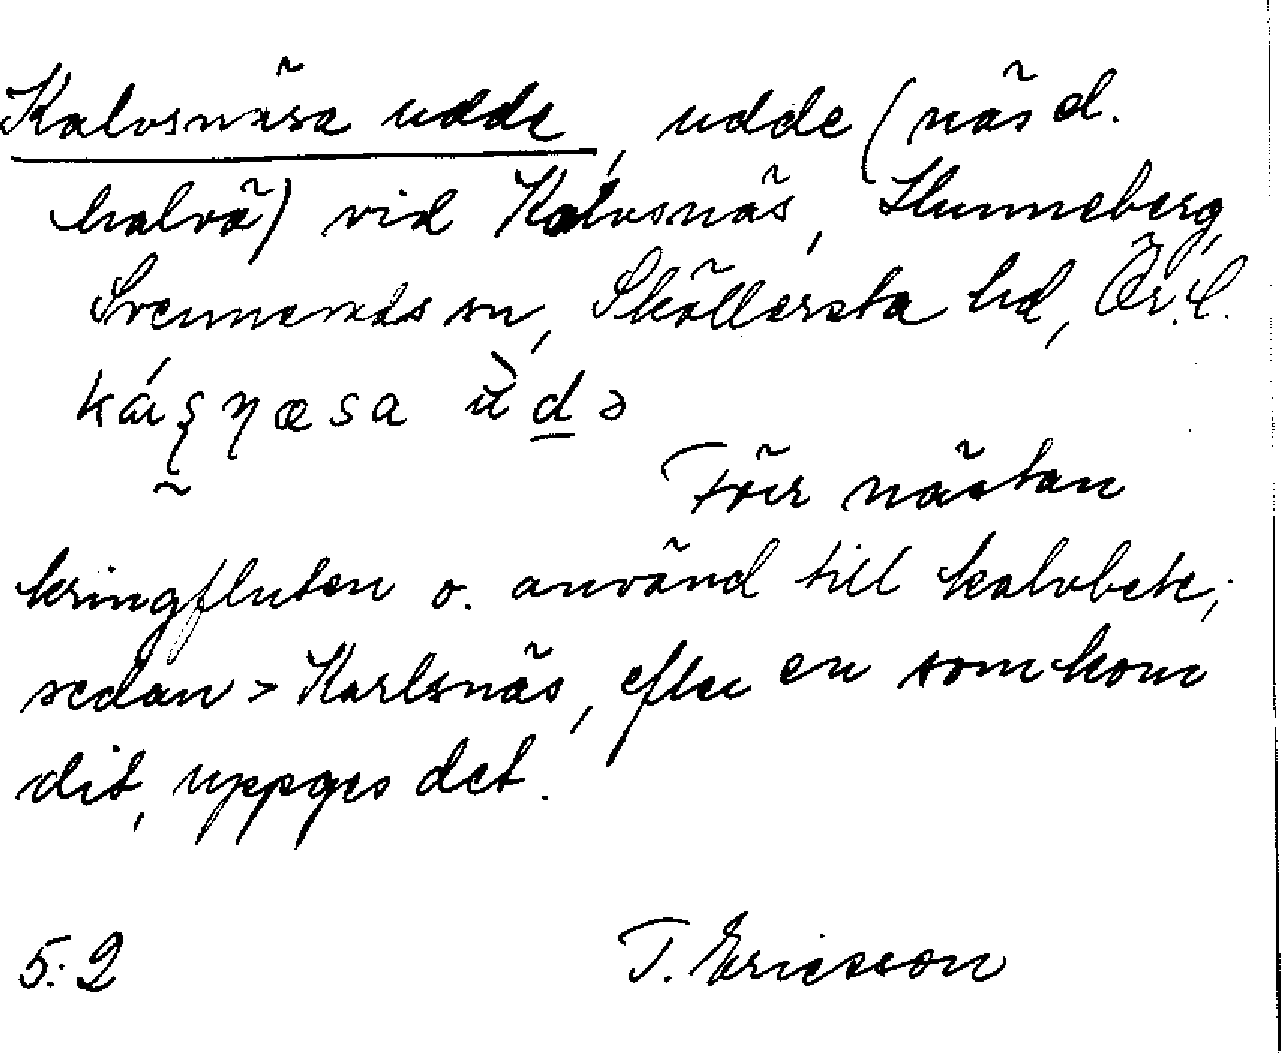 Kalvsnäsa udde, udde (näs el.
halvö) vid Kalvsnäs, Hunneberg,
Svennevads sn, Sköllersta hd, Ör.l.
Förr nästan
kringfluten o. använd till kalvbete;
sedan > Karlsnäs, efter en som kom
dit, uppges det.
5:2 T. Ericsson